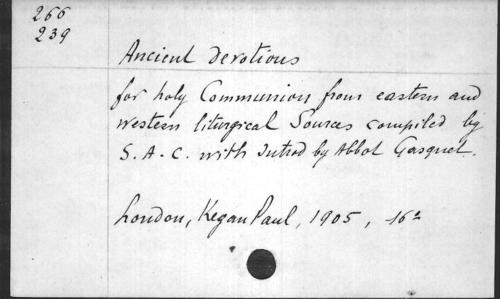 266
239
Ancient devotions
for holy Communion from eastern and
western liturgical Sources compiled by
S. A. C. with Introd by Abbot Gasquet.
London, Kegan Paul, 1905, 16º